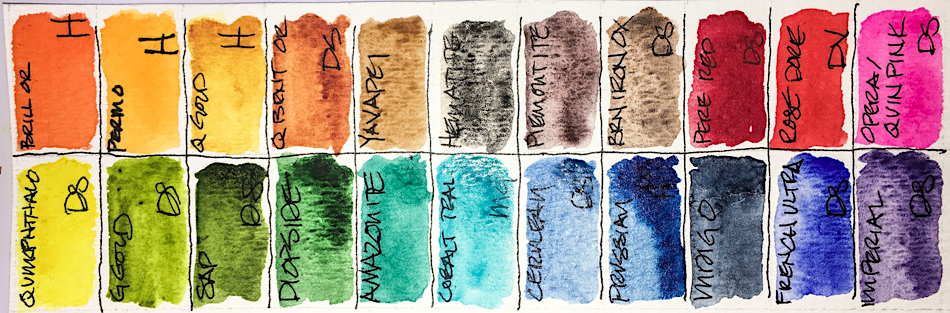 BRILL OR
H
PERINO
H
Q GOLD
H
Q BSENT OR
DS
YAVAPEI
HEMATITE
PIEMONTITE
BRN IRON OX
DS
PERE RED
DS
ROSE DORE
DV
OPERA/
QUIN PINK
DS
QUINOPHTHALO
DS
G GOLD
DS
SAP
DS
DIOPSIDE
AMAZONITE
COBALT TEAL
CERULEAN
PRUSSIAN
H
INDIGO
FRENCH ULTRA
DS
IMPERIAL
DS